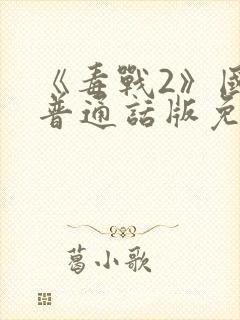 《毒戰2》國
普通話版免
葛小歌